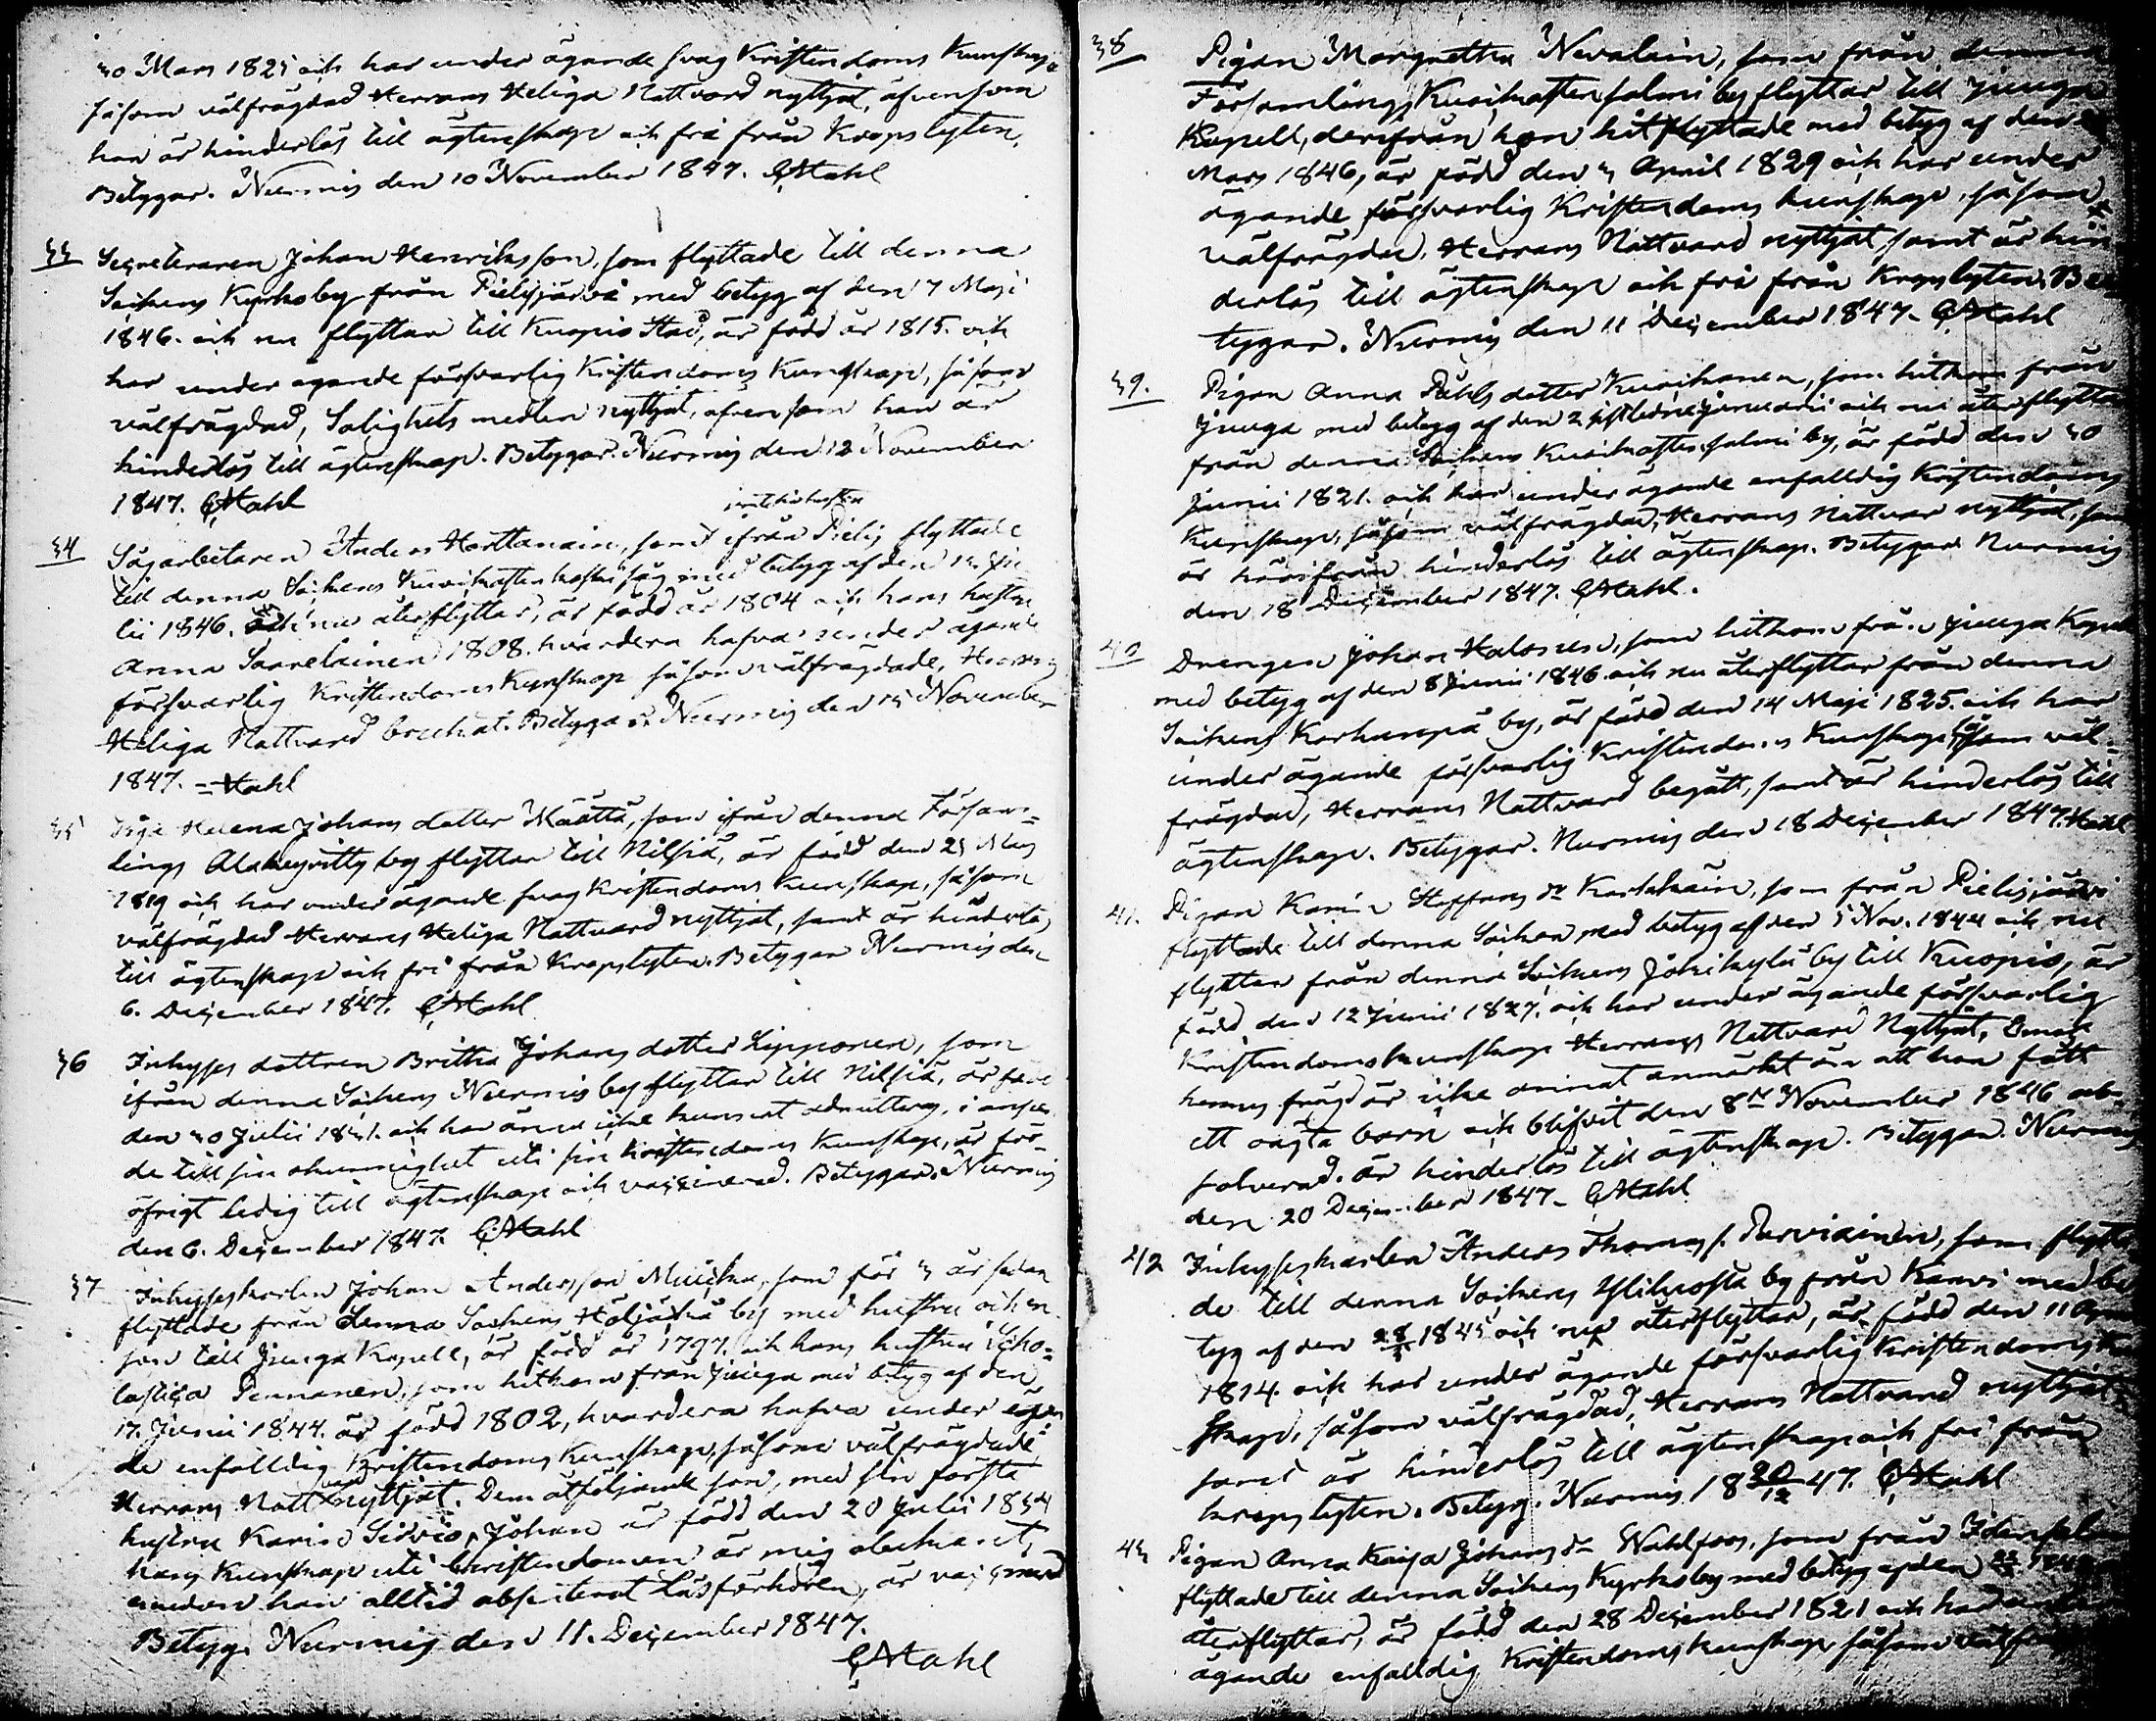 30 Mars 1825 och har under ägande svag Kristendoms Kunskap
såsom välfrägdad Herrans Heliga Nattvard nyttjat, äfvensom
han är hinderlös till ägtenskap och fri från Kropslyten,
Betygar. Nurmis den 10 November 1847. CStahl
33 Secreteraren Johan Henriksson, som flyttade till denna
Sockens Kyrkoby från Pielisjärvi med betyg af den 7 Maji
1846. och nu flyttar till Kuopio Stad, är född år 1815. och
har under ägande försvarlig Kristendoms Kunskap, såsom
välfrägdad, Salighets medlen nyttjat, äfvensom han är
hinderlös till ägtenskap. Betygar. Nurmis den 12 November
1847. CStahl
34 Sågarbetaren Anders Harttanain, som ifrån Pielis flyttade
till denna Sockens Kuoikasten koski såg med betyg af den
lii 1846. och nu återflyttar, är född år 1804 och hans hustru
Anna Saarelainen 1808. hvardera hafva under ägande
försvarlig Kristendoms Kunskap såsom välfrägdade, Herrans
Heliga Nattvard brukat. Betygar. Nurmis den 15 November
1847. Stahl
35 Helena Johans dotter Määttä, som ifrån denna Försam=
lings Alakeyritty by flyttar till Nilsiä, är född den 25 Maj
1819 och har under ägande svag Kristendoms Kunskap, såsom
välfrägdad Herrans Heliga Nattvard nyttjat, samt är hinderlös
till ägtenskap och fri från Kropslyten. Betygar Nurmis den
6. December 1847. CStahl
36 Inhyses dottren Britha Johans dotter Lipponen, som
ifrån denna Sockens Nurmis by flyttar till Nilsiä, är född
den 30 Julii 1831. och har ännu icke kunnat admitteras, i anseen
de till sin okunnighet uti sin Kristendoms Kunskap, är för
öfrigt ledig till ägtenskap och vaccinerad. Betygar. Nurmis
den 6. December 1847. CStahl
37 Inhyseskarlen Johan Andersson Muikku, som för 3 år sedan
flyttade från denna Sockens Höljäkä by med hustru och en
son till Juuga Kapell, är född år 1797. och hans hustru Scho=
lastica Pennanen, som hitkom från Juuga med betyg af den
17. Junii 1844. är född 1802, hvardera hafva under ägan
de enfalldig Kristendoms Kunskap, såsom välfrägdade
Herrans Nattvard nyttjat. Dem åtföljande son, med sin första
hustru Karin Sirviö, Johan är född den 20 Julii 1834
hans Kunskap uti Christendomen är mig obekant,
emedan han alltid absenterat Läsförhören, är vaccinerad
Betyg. Nurmis den 11. December 1847.
CStahl
38 Pigan Margretha Nevalain, som från denna
Församlings Kuoikastensalmi by flyttar till Juuga
Kapell, derifrån hon hitflyttade med betyg af den
Mars 1846, är född den 3 April 1829 och har under
ägande försvarlig Kristendoms kunskap, såsom
välfrägdad, Herrans Nattvard nyttjat samt är hin
derlös till ägtenskap och fri från Kropslyten. Be
tygar. Nurmis den 11 December 1847. CStahl
39. Pigan Anna Påhls dotter Kuoikanen, som hitkom från
Juuga med betyg af den 2 sistledne Januarii och nu återflyttar
från denna Sockens Kuoikastensalmi by, är född den 30
Junii 1821. och har under ägande enfalldig Kristendoms
Kunskap, såsom välfrägdad, Herrans Nattvar nyttjat, som
är härifrån hinderlös till ägtenskap. Betygar Nurmis
den 18 December 1847. CStahl.
40 Drengen Johan Halonen, som hitkom från Juuga Kapell
med betyg af den 8 Junii 1846 och nu återflyttar från denna
Sockens Karhunpä by, är född den 14 Maji 1825. och har
under ägande försvarlig Kristendoms Kunskap såsom väl=
frägdad, Herrans Nattvard begått, samt är hinderlös till
ägtenskap. Betygar. Nurmis den 18 December 1847. Stahl
41. Pigan Karin Staffans dr Karhkain, som från Pielisjärvi
flyttade till denna Socken med betyg af den 5 Nov. 1844 och nu
flyttar från denna Sockens Jokikylä by till Kuopio, är
född den 12 Junii 1827. och har under ägande försvarlig
Kristendomskunskap Herrans Nattvard Nyttjat, Om
hennes frägd är icke annat anmärkt än att hon fått
ett oägta barn och blifvit den 8de November 1846 ab=
solverad. är hinderlös till ägtenskap. Betygar. Nurmis
den 20 December 1847. CStahl
42 Inhyseskarlen Anders Thomas s. Parviainen, som flytta
de till denna Sockens Ylikosta by från Kaavi med be
tyg af den 1845 och nu återflyttar, är född den 11 Apr
1814. och har under ägande försvarlig Kristendoms ku
skap, såsom välfrägdad, Herrans Nattvard nyttjat
samt är hinderlös till ägtenskap och fri från
kropslyten. Betyg. Nurmis 18 20/12 47. CStahl
43 Pigan Anna Kaisa Johans dr Wahlfors, som från Idensalmi
flyttade till denna Sockens Kyrkoby med betyg af den
återflyttar, är född den 28 December 1821 och har under
ägande enfalldig Kristendoms kunskap såsom välfr